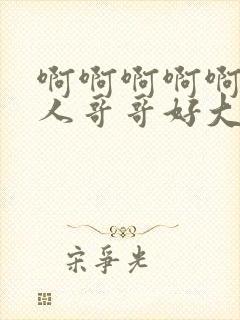 啊啊啊啊啊
人哥哥好大
宋争光